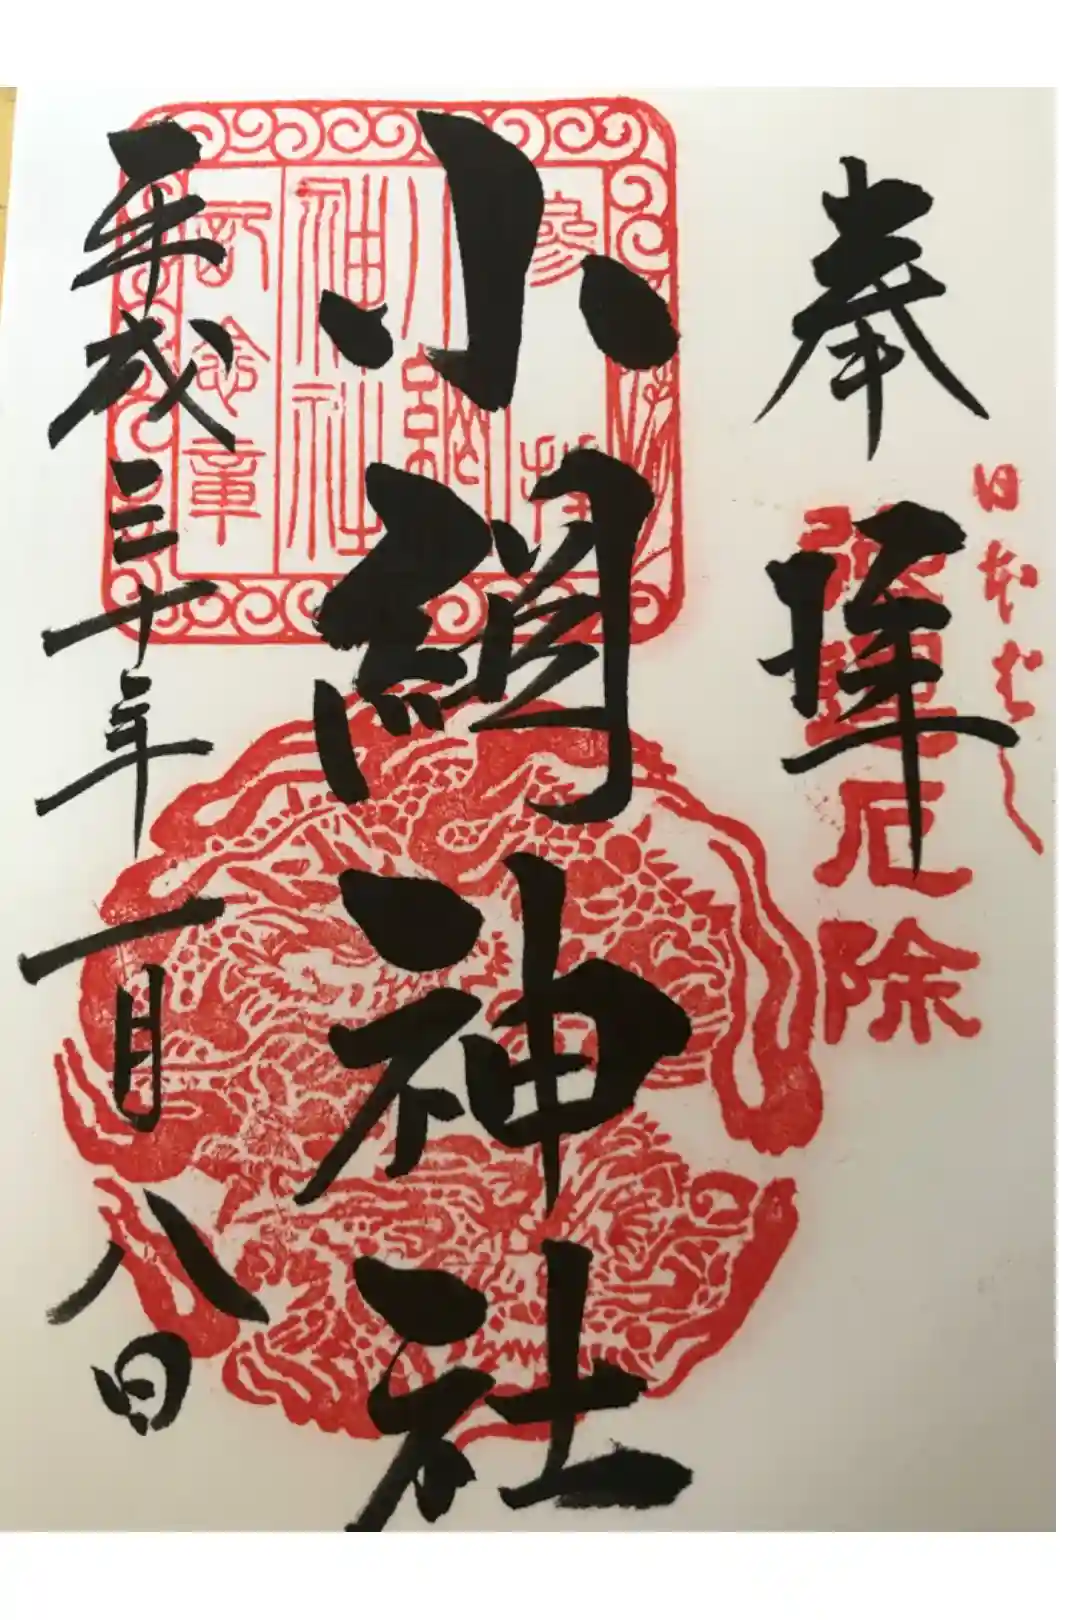 奉拝
日本ばし
強運厄除
小網神社
参拝
小網神社
記念章
平成三十年一月八日